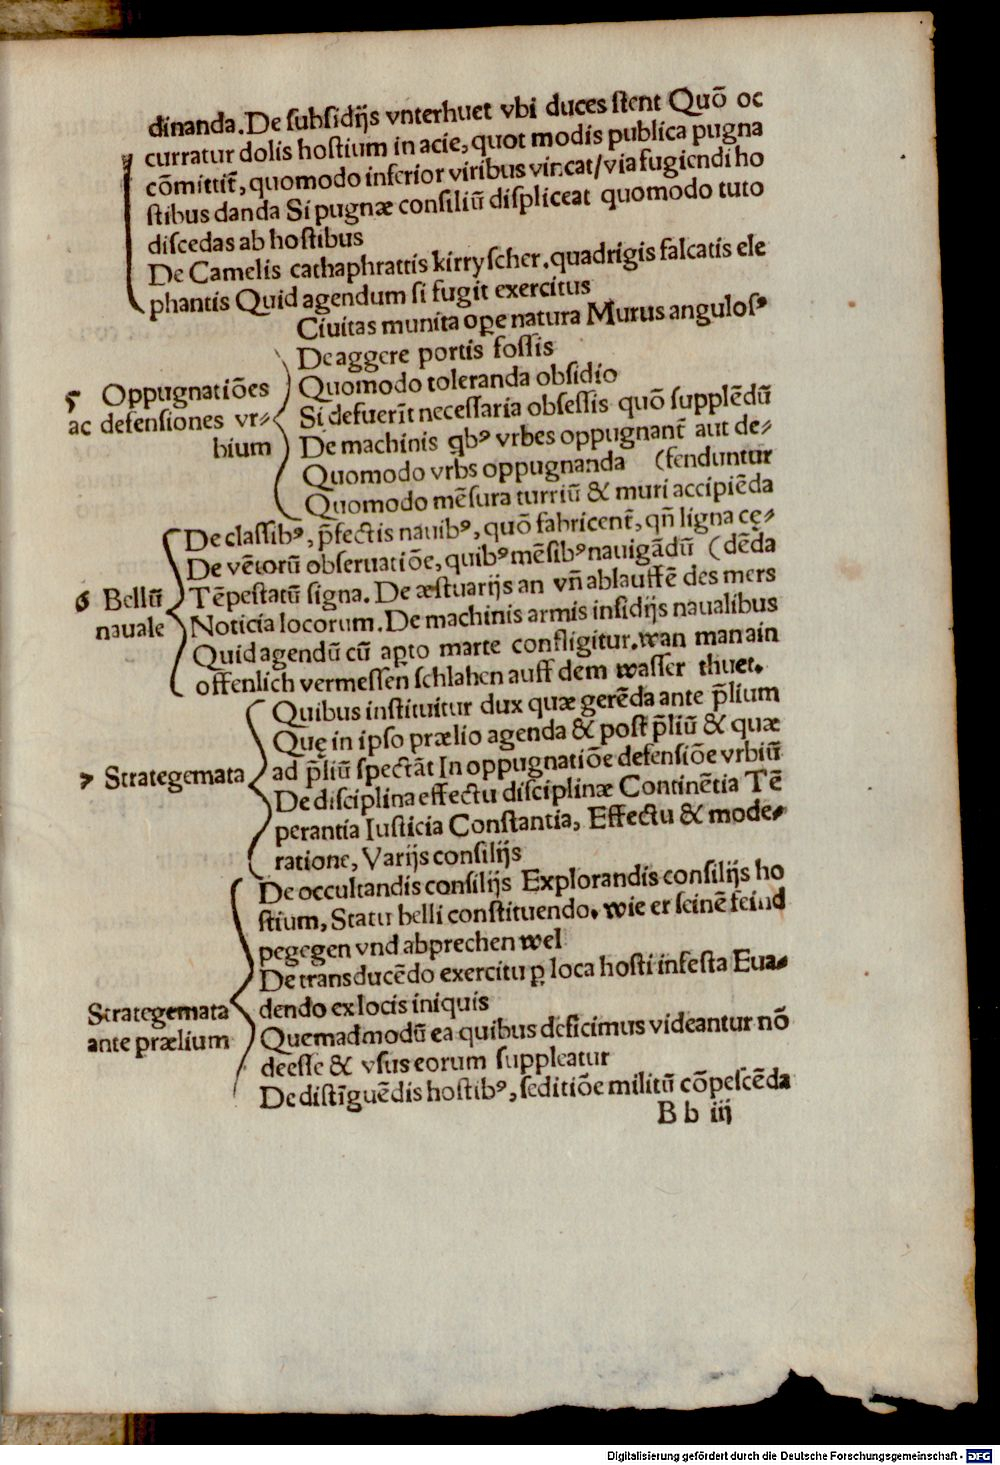 dinanda. De ſubſidijs vnterhuet vbi duces ſtent Quō oc
curratur dolis hoſtium in acie, quot modis publica pugna
cōmittit̄, quomodo inferior viribus vincat/ via fugiendi ho
ſtibus danda Si pugnæ conſiliū diſpliceat quomodo tuto
diſcedas ab hoſtibus
De Camelis cathaphrattis kirryſcher. quadrigis falcatis ele
phantis Quid agendum ſi fugit exercitus
5 Oppugnatiōes
ac defenſiones vr⸗
bium
Ciuitas munita oꝑe natura Murus anguloſꝰ
De aggere portis foſſis
Quomodo toleranda obſidio
Si defuerīt neceſſaria obſeſſis quō ſupplēdū
De machinis qbꝰ vrbes oppugnant̄ aut de⸗
Quomodo vrbs oppugnanda (fenduntur
Quomodo mēſura turriū & muri accipiēda
6 Bellū
nauale
De claſſibꝰ, p̄fectis nauibꝰ, quō fabricent̄, qn̄ ligna cę⸗
De vētorū obſeruatiōe, quibꝰ mēſibꝰ nauigādū (dēda
Tēpeſtatū ſigna. De æſtuarijs an vn̄ ablauffē des mers
Noticia locorum. De machinis armis inſidijs naualibus
Quid agendū cū aꝑto marte confligitur. wan man ain
offenlich vermeſſen ſchlahen auff dem waſſer thuet.
7 Strategemata
Quibus inſtituitur dux quæ gerēda ante p̄lium
Quę in ipſo prælio agenda & poſt p̄liū & quæ
ad p̄liū ſpectāt In oppugnatiōe defenſiōe vrbiū
De diſciplina effectu diſciplinæ Continētia Tē
perantia Iuſticia Conſtantia, Effectu & mode⸗
ratione, Varijs conſilijs
Strategemata
ante prælium
De occultandis conſilijs Explorandis conſilijs ho
ſtium, Statu belli conſtituendo. wie er ſeinē feind
pegegen vnd abprechen wel
De transducēdo exercitu ꝑ loca hoſti infeſta Eua⸗
dendo ex locis iniquis
Quemadmodū ea quibus deficimus videantur nō
deeſſe & vſus eorum ſuppleatur
De diſtīguēdis hoſtibꝰ, ſeditiōe militū cōpeſcēda
B b iij
Digitalisierung gefördert durch die Deutsche Forschungsgemeinschaft - DFG